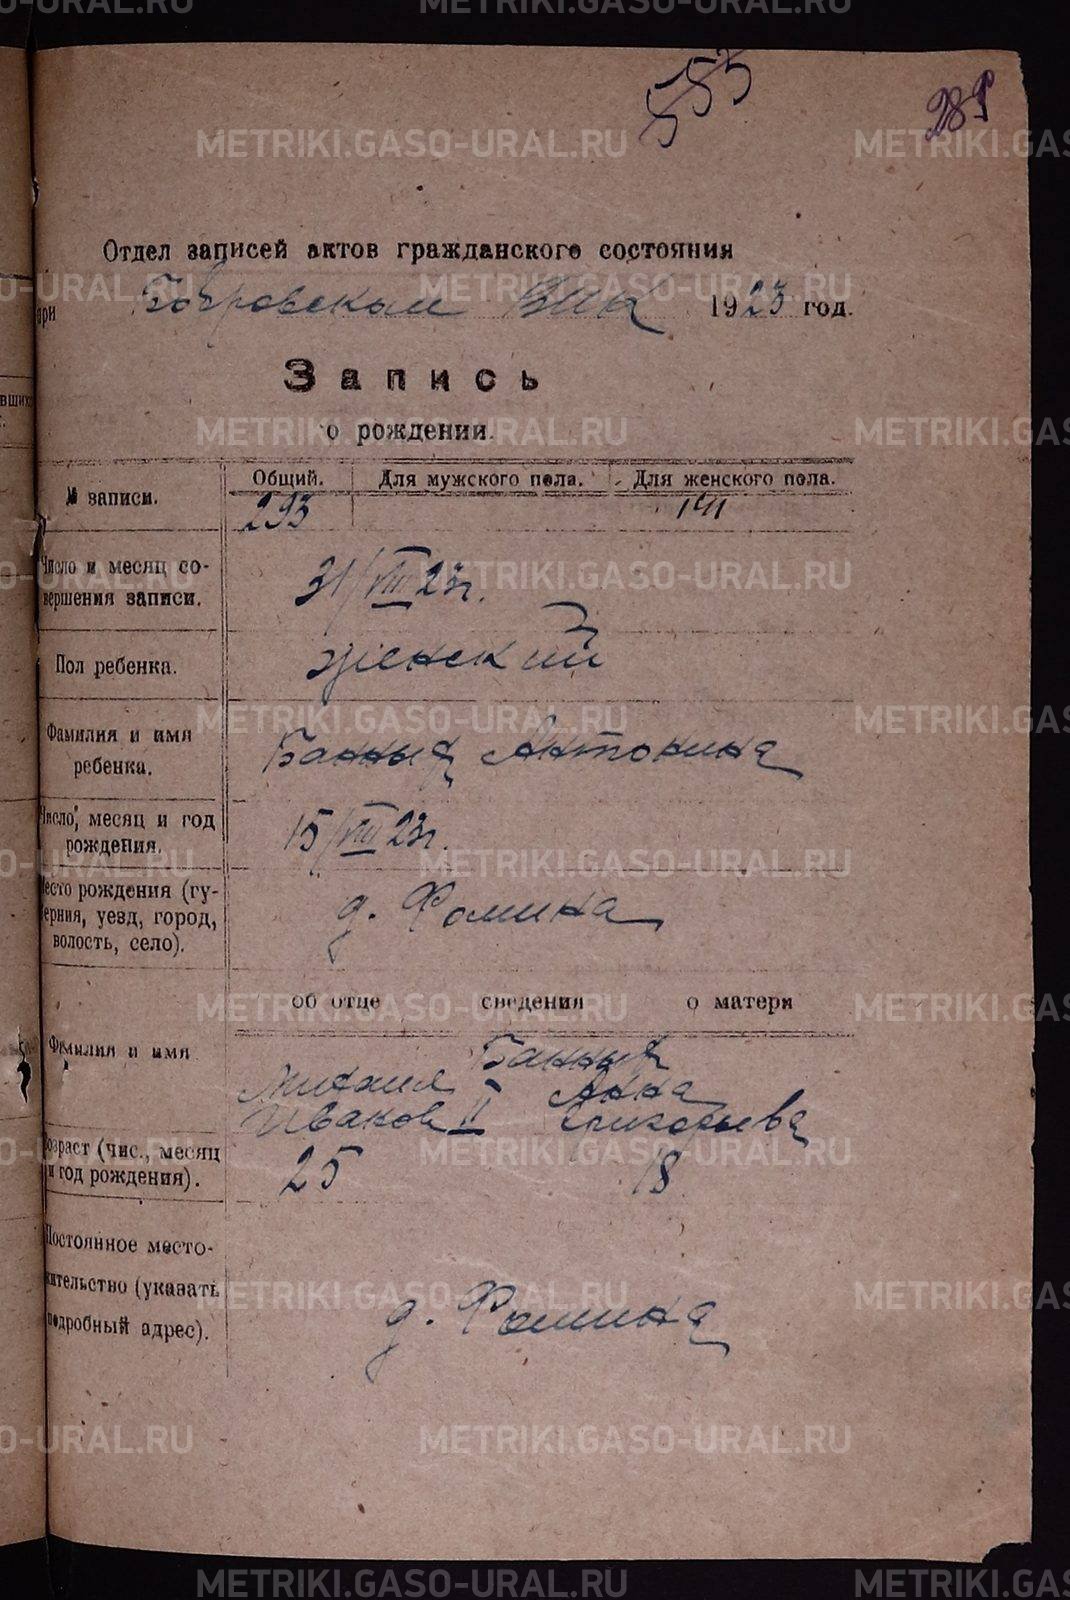 555
289
Отдел записей актов гражданского состояния
при Бобровском ВИК 1923 год.
Запись
о рождении.
№ записи.
Общий. Для мужского пола. Для женского пола.
293 141
Число и месяц со-
вершения записи.
31/VIII 23г.
Пол ребенка.
женский
Фамилия и имя
ребенка.
Банных Антонина
Число, месяц и год
рождения.
15/VIII 23г.
Место рождения (гу-
берния, уезд, город,
волость, село).
д. Фомина
об отце сведения о матери
Фамилия и имя
Банных
Михаил Анна
Иванов II Григорьева
Возраст (чис., месяц
и год рождения).
25 18
Постоянное место-
жительство (указать
подробный адрес).
д. Фомина
METRIKI.GASO-URAL.RU